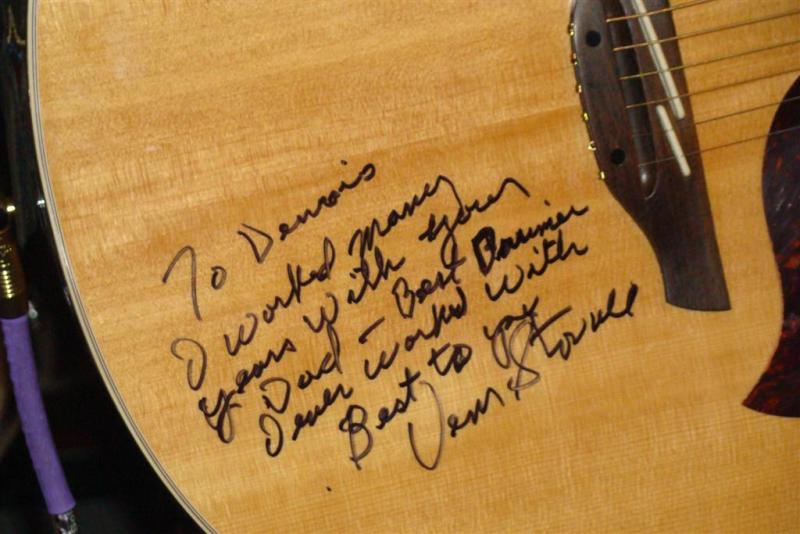 To Dennis
I worked many
years with your
Dad - Best Drummer
I ever worked with
Best to you
Vern Stovall